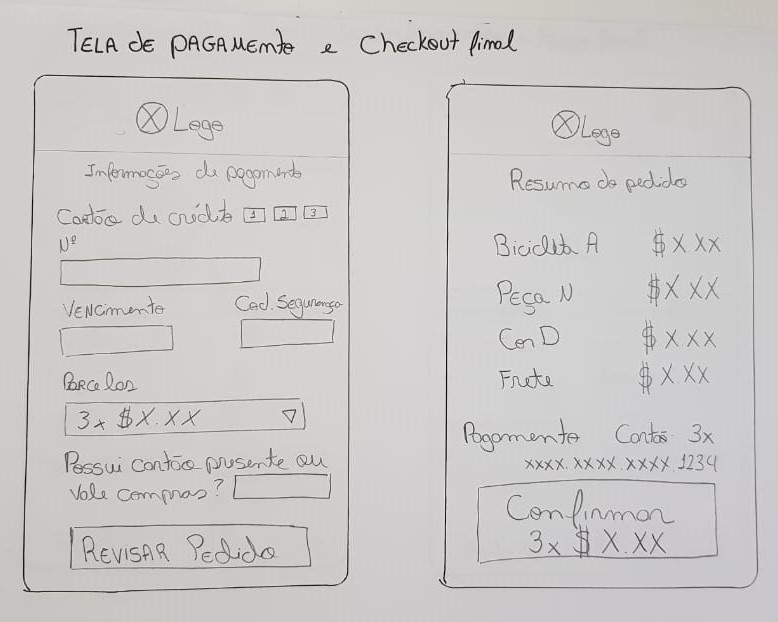 TELA de PAGAMENTO e Checkout final
Logo
Informações de pagamento
Cartão de crédito 1 2 3
Nº
VENCimento Cod. Segurança
Parcelas
3x $X.XX
Possui cartão presente ou
Vale compras?
REVISAR Pedido
Logo
Resumo do pedido
Bicicleta A $X.XX
Peça N $X.XX
Cor D $X.XX
Frete $X.XX
Pagamento Cartão 3x
XXXX.XXXX.XXXX.1234
Confirmar
3x $X.XX